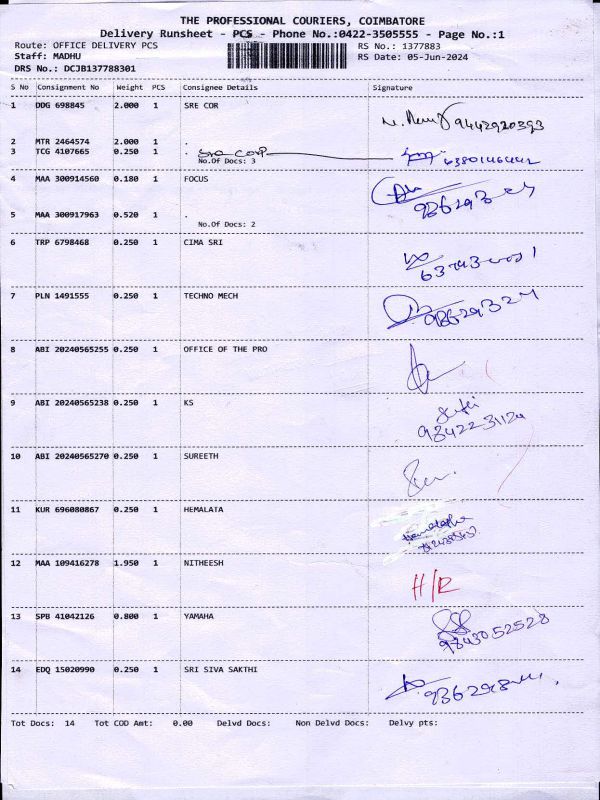 THE PROFESSIONAL COURIERS, COIMBATORE
Delivery Runsheet - PCS - Phone No.:0422-3505555 - Page No.:1
Route: OFFICE DELIVERY PCS RS No.: 1377883
Staff: MADHU RS Date: 05-Jun-2024
DRS No.: DCJB137788301
S No Consignment No Weight PCS Consignee Details Signature
1 DDG 698845 2.000 1 SRE COR
9442920393
2 MTR 2464574 2.000 1 .
3 TCG 4107665 0.250 1 . Sre Corp
No.Of Docs: 3
4 MAA 300914560 0.180 1 FOCUS
5 MAA 300917963 0.520 1 .
No.Of Docs: 2
6 TRP 6798468 0.250 1 CIMA SRI
7 PLN 1491555 0.250 1 TECHNO MECH
8 ABI 20240565255 0.250 1 OFFICE OF THE PRO
9 ABI 20240565238 0.250 1 KS
10 ABI 20240565270 0.250 1 SUREETH
11 KUR 696080867 0.250 1 HEMALATA
12 MAA 109416278 1.950 1 NITHEESH H/R
13 SPB 41042126 0.800 1 YAMAHA
9843052528
14 EDQ 15020990 0.250 1 SRI SIVA SAKTHI
Tot Docs: 14 Tot COD Amt: 0.00 Delvd Docs: Non Delvd Docs: Delvy pts: